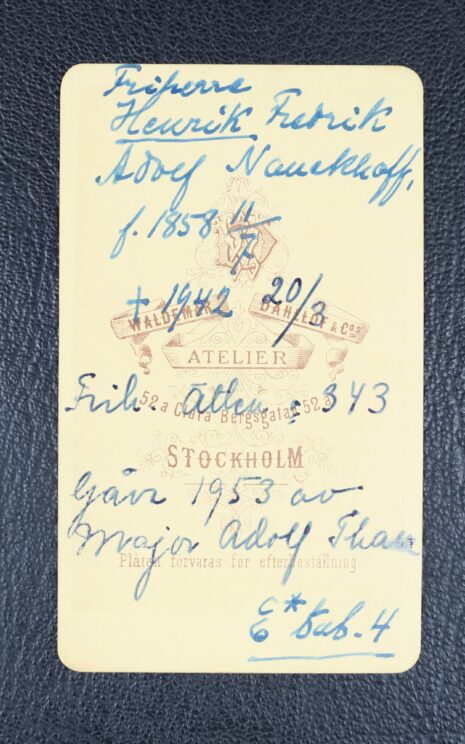 Friherre
Henrik Fredrik
Adolf Nauckhoff,
f. 1858 11/7
† 1942 20/3
WALDEMAR DAHLLÖF & Cos
ATELIER
Frih. ätten 343
52.a Clara Bergsgatan 52.a
STOCKHOLM
Gåva 1953 av
Major Adolf Tham
Plåten förvaras för efterbeställning.
E* tab. 4